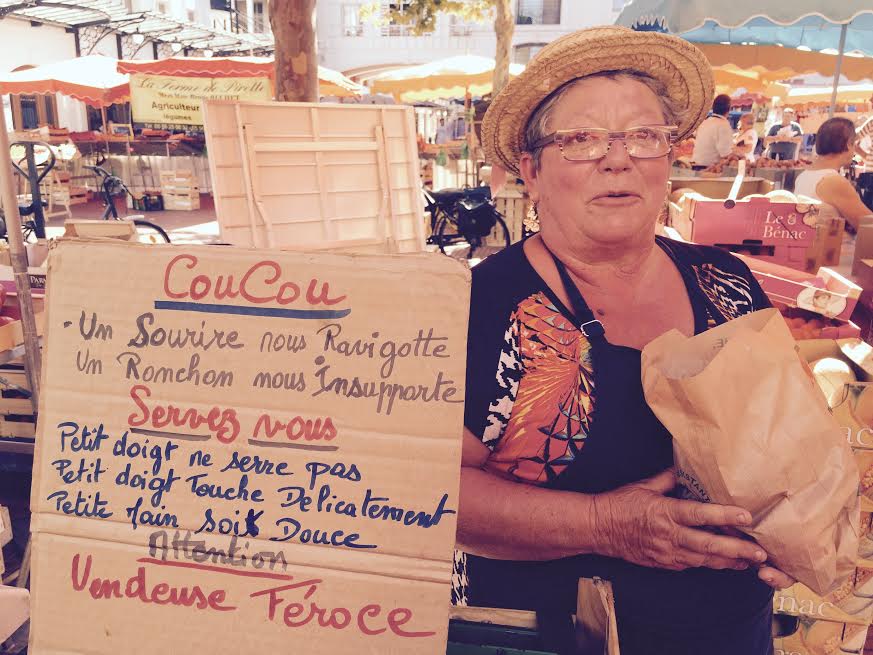 La Ferme de Pirette
Agriculteur
légumes
Le
Bénac
CouCou
. Un Sourire nous Ravigotte
Un Ronchon nous Insupporte
Servez vous
Petit doigt ne serre pas
Petit doigt Touche Délicatement
Petite Main soit Douce
Attention
Vendeuse Féroce